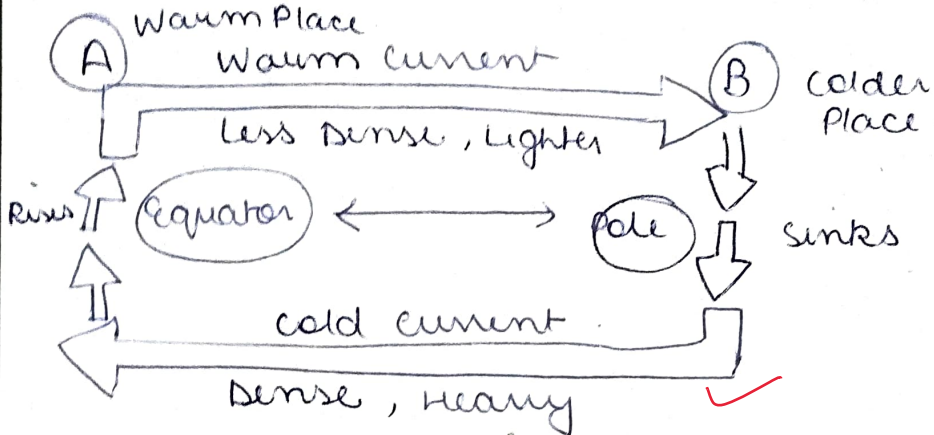 Warm Place
A
Warm Current
B
Colder
Place
Less Dense, Lighter
Rises
Equator
Pole
Sinks
Cold Current
Dense, Heavy